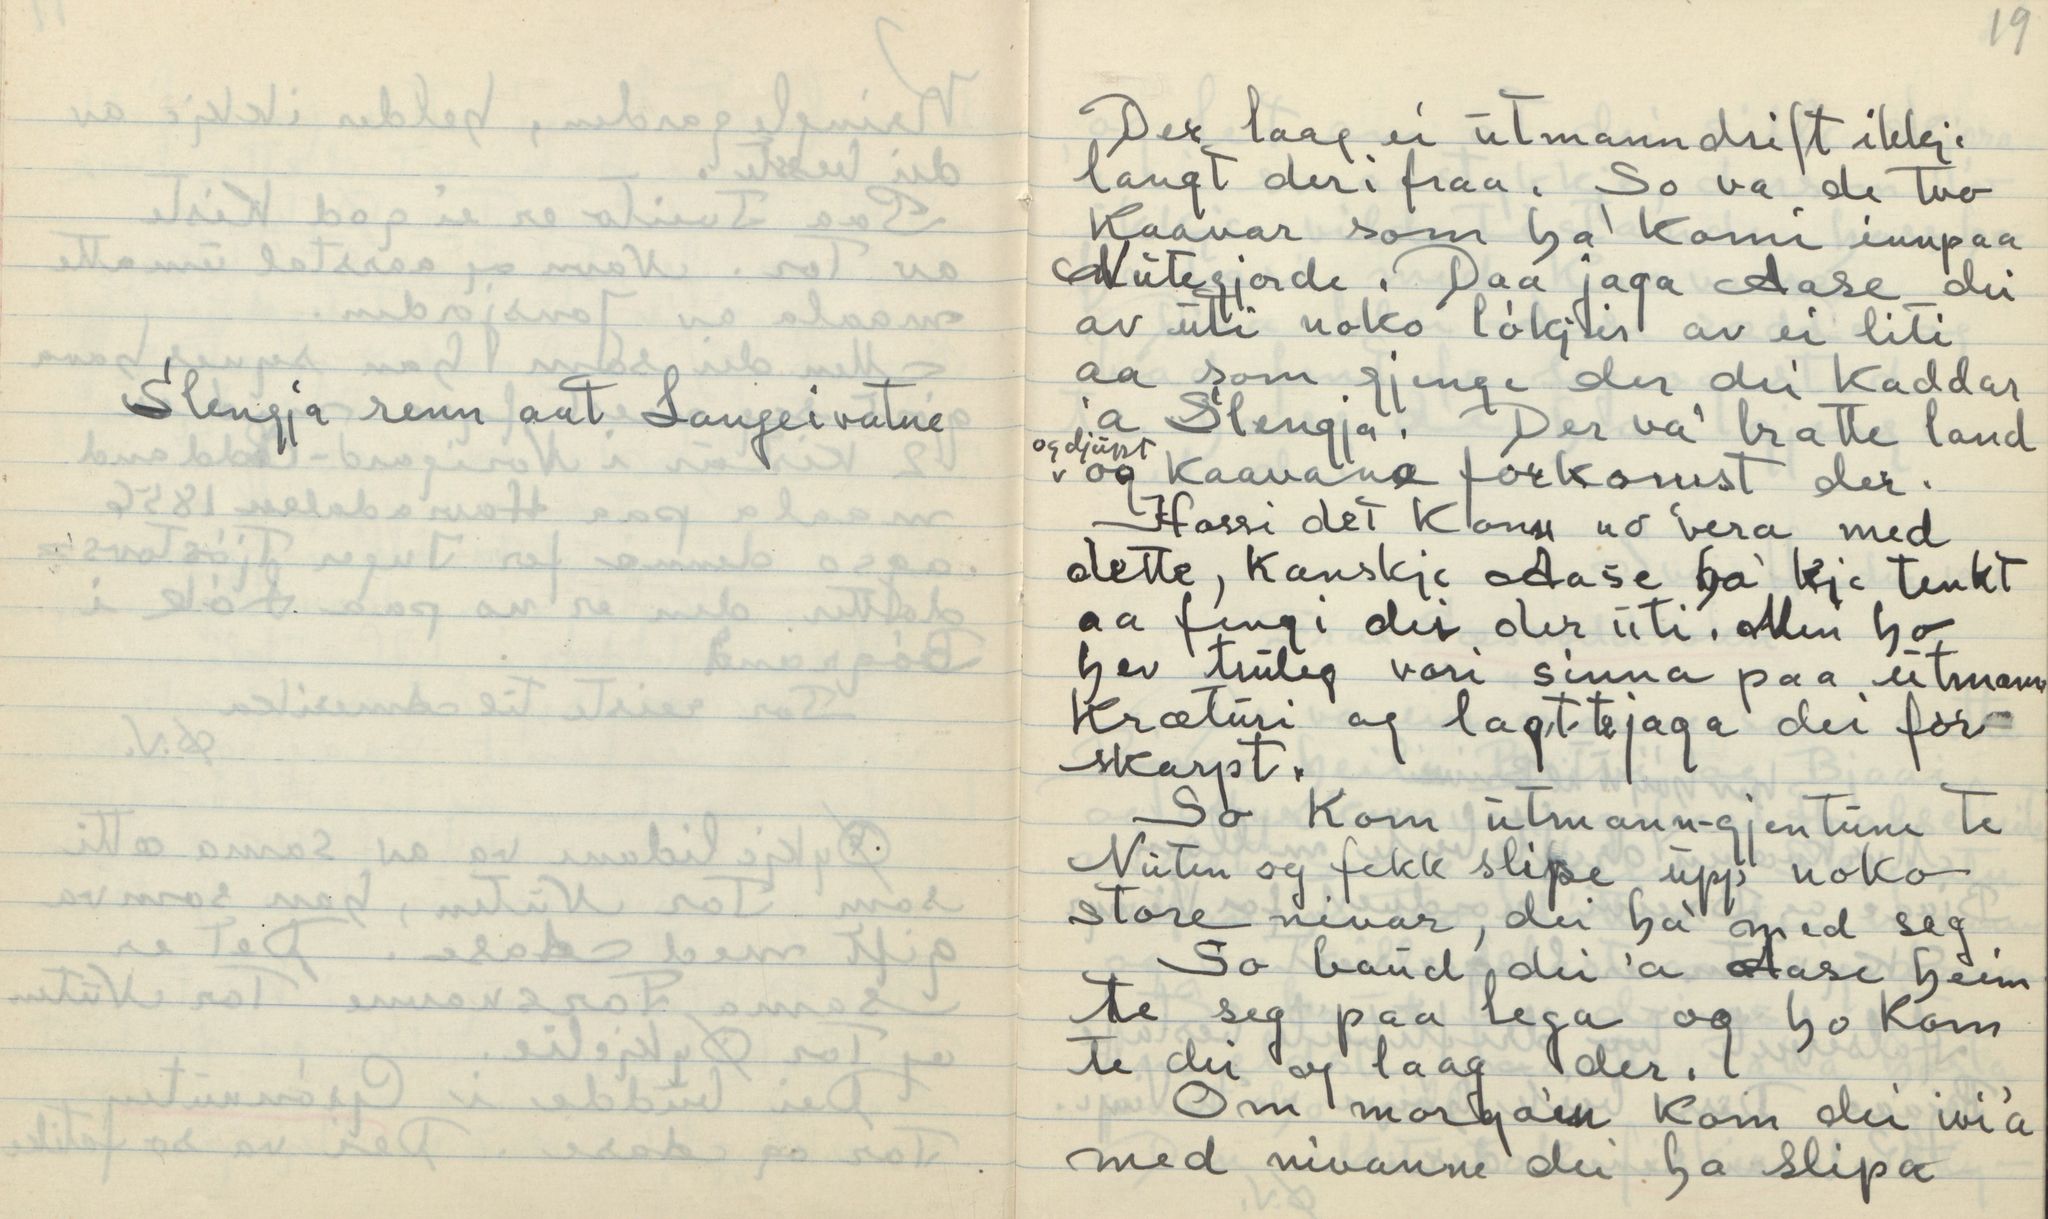 Slengja renn aat Langeivatne
19
Der laag ei ütmanndrift ikkje
langt derifraa. So va de tvo
Kaavar som ha' komi innpaa
Nütegjorde. Daa jaga Aase dei
av üti noko lókjir av ei liti
aa som gjenge der dei kaddar
'a Slengja. Der va' bratte land
og djüpt
og kaavane forkomst der.
Hossi det konn no vera med
dette, kanskje Aase ha' kje tenkt
aa fengi dei der üti. Men ho
hev trüleg vori sinna paa ütmanns
krætüri og lagt te jaga dei for
skarpt.
So kom ütmann-gjentüne te
Nüten og fekk slipe üpp noko
store nivar, dei ha' med seg
So baüd dei 'a Aase heim
te seg paa lega og ho kom
te dei og laag der.
Om morgo'en kom dei ivi'a
med nivanne dei ha slipa